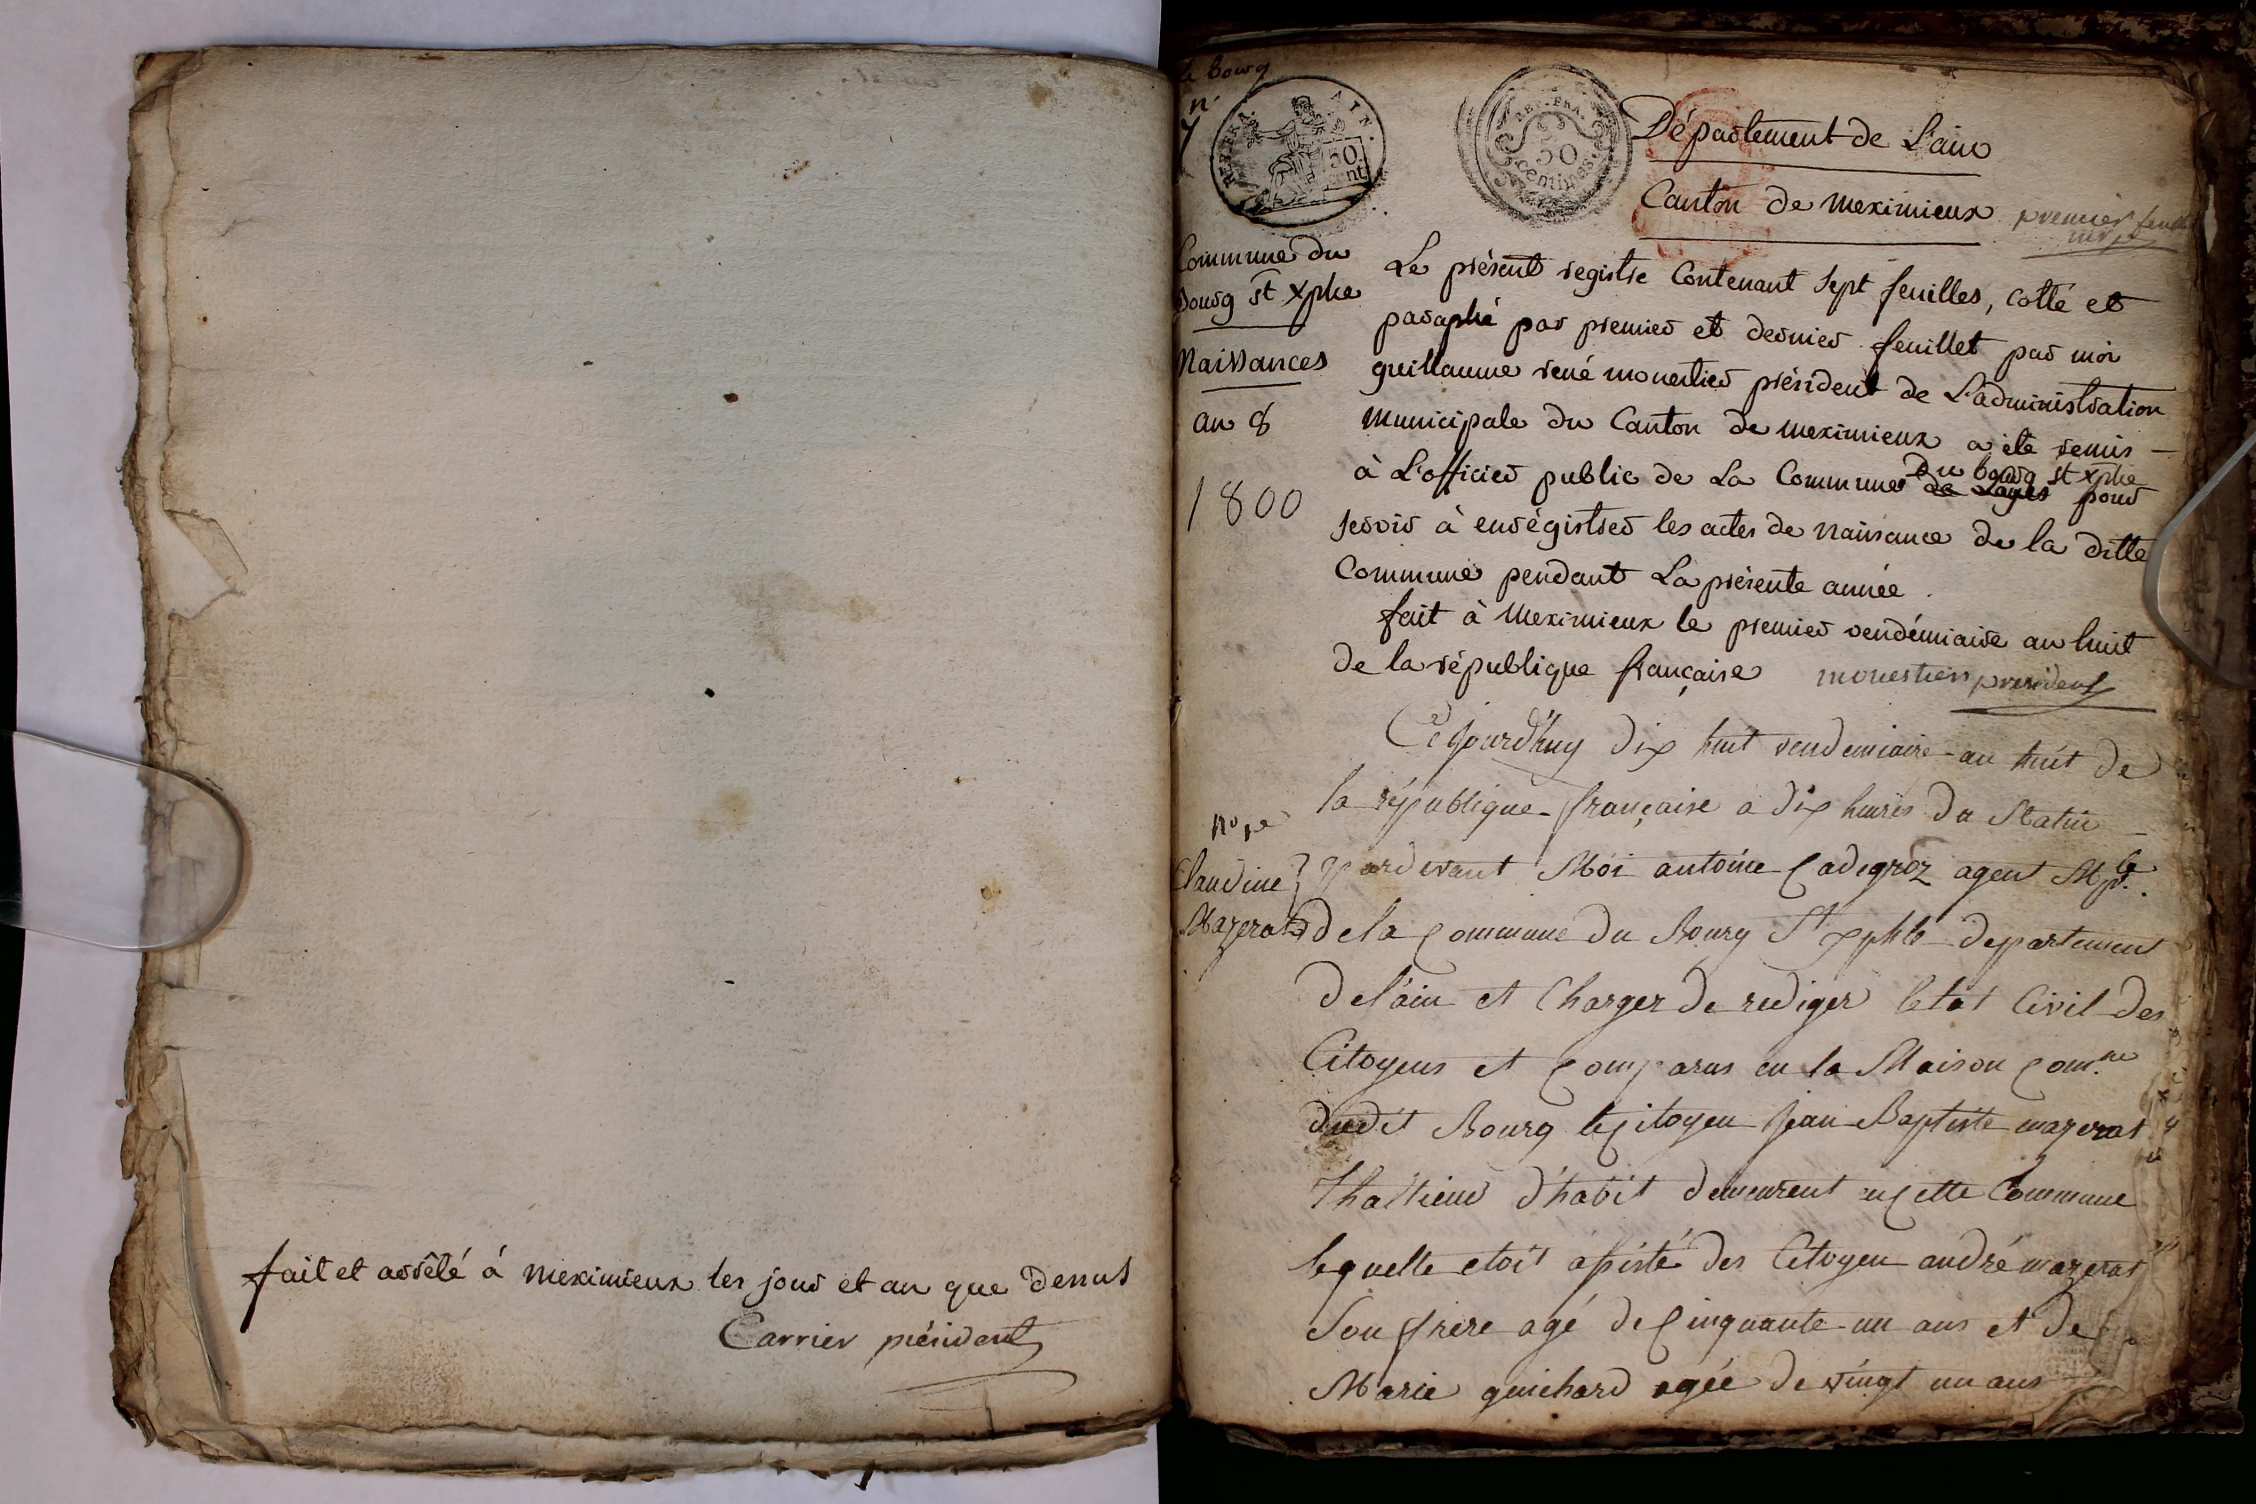 fait et arrêté à meximieux les jour et an que dessus
Carrier président
le bourg
n.
7
REP. FRA. AIN.
50
cent
REP. FRA.
50
Centimes
Département de L'ain
Canton de meximieux
premier feuillet
Commune du
Bourg st Xphe
Naissances
an 8
1800
Le présent registre Contenant Sept feuilles, cotté et
paraphé par premier et dernier feuillet par moi
guillaume rené monestier président de L'administration
municipale du Canton de meximieux a été remis
à L'officier public de La Commune du bourg st xphe de Loyes pour
servir à enrégistrer les actes de naissance de la ditte
Commune pendant La présente année.
fait à meximieux le premier vendémiaire an huit
de la république française monestier president
Cejourd'huy dix huit vendemiaire an huit de
la république française a dix heures du Matin
No 1er
Claudine
Mazerat
pardevant Moi antoine Cadegroz agent Mple.
de la Commune du Bourg St Xphle departement
de l'ain et Charger de rediger letat Civil des
Citoyens et Comparus en la Maison Com.ne
dudit Bourg le Citoyen Jean Baptiste mazerat
thallieur d'habit demeurent en Cette Commune
lequelle etoit asisté des Citoyen andré mazerat
Son frere agé de Cinquante un ans et de
Marie guichard agée de vingt un ans